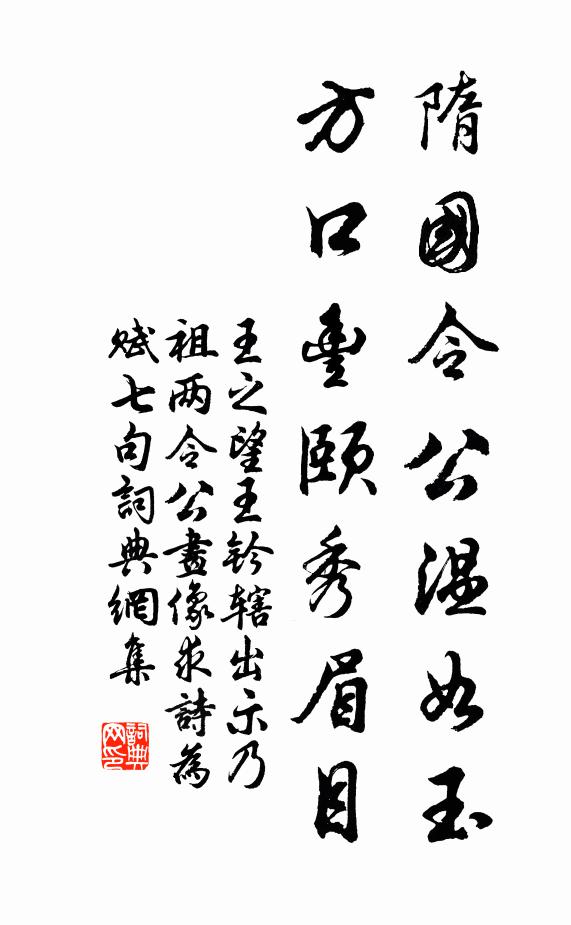 隋國令公温如玉
方口豐頤秀眉目
王之望王鈐辖出示乃
祖两令公畫像求詩為
赋七句詞典網集
詞典网印